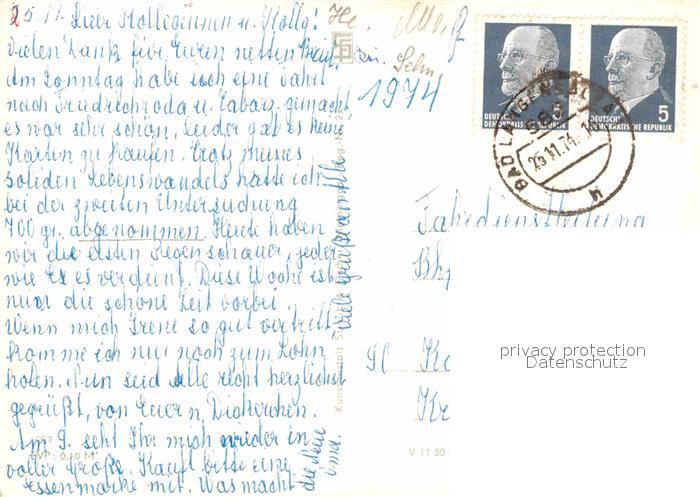 25.11. Lieber Kolleginnen u. Kolle!
Vielen Dank für Euren netten Brief.
Am Sonntag habe ich eine Fahrt
nach Friedrichroda u. Tabarz gemacht
es war sehr schön, leider gab es keine
Karten zu kaufen. Trotz meines
soliden Lebenswandels hatte ich
bei der zweiten Untersuchung
700 gr. abgenommen. Heute haben
wir die ersten Regenschauer, jeder
wie er es verdient. Diese Woche ist
nun die schöne Zeit vorbei.
Wenn mich Irene so gut vertritt
komme ich nur noch zum Lohn
holen. Nun seid Alle recht herzlichst
gegrüßt, von Euern Dickerchen.
Am 9. seht Ihr mich wieder in
voller Größe. Kauft bitte eine
Essenmarke mit. Was macht
die Neue
Viele Grüße an Alle
1974
DEUTSCHE
DEMOKRATISCHE REPUBLIK
5
DEUTSCHE
DEMOKRATISCHE REPUBLIK
5
BAD LANGENSALZA
25.11.74
Fahrdienstleitung
Bhf
Kunstanstalt
EVP: 0,20 M
V 11 50
privacy protection
Datenschutz